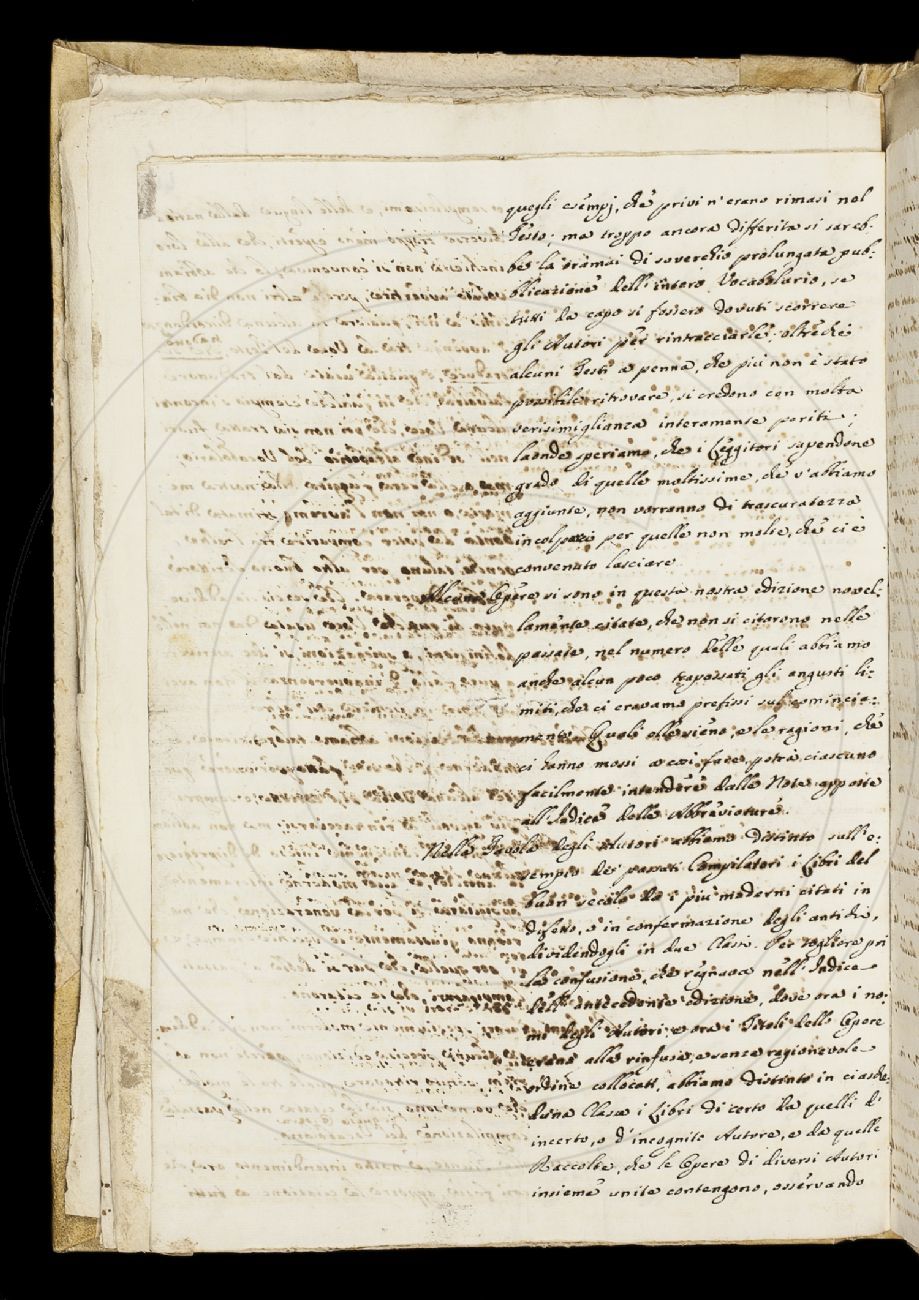 quegli esempj, che privi n'erano rimasi nel
Testo; ma troppo ancora differita si sareb-
be la oramai di soverchio prolungata pub-
blicazione dell'intero Vocabolario, se
tutti da capo si fossero dovuti scorrere
gli Autori per rintracciarle; oltrechè
alcuni Testi a penna, che più non è stato
possibile ritrovare, si credono con molta
verisimiglianza interamente periti;
laonde speriamo, che i Leggitori sapendone
grado di quelle moltissime, che v'abbiamo
aggiunte, non vorranno di trascuratezza
incolparci per quelle non molte, che ci è
convenuto lasciare.
Alcune Opere vi sono in questa nostra edizione novel-
lamente citate, che non si citarono nelle
passate, nel numero delle quali abbiamo
anche alcun poco trapassati gli angusti li-
miti, che ci eravamo prefissi sul comincia-
mento. Quali elle sieno, e le ragioni, che
ci hanno mossi a così fare, potrà ciascuno
facilmente intendere dalle Note apposte
all'Indice delle Abbreviature.
Nella Tavola degli Autori abbiamo distinto sull'e-
sempio de' passati Compilatori i Libri del
buon secolo da i più moderni citati in
difetto, o in confermazione degli antichi,
dividendogli in due Classi. Per togliere poi
la confusione, che regnava nell'Indice
dell'antecedente edizione, dove ora i no-
mi degli Autori, e ora i Titoli delle Opere
erano alla rinfusa, e senza ragionevole
ordine collocati, abbiamo distinto in ciasche-
duna Classe i Libri di certo da quelli di
incerto, o d'incognito Autore, e da quelle
Raccolte, che le Opere di diversi Autori
insieme unite contengono, osservando